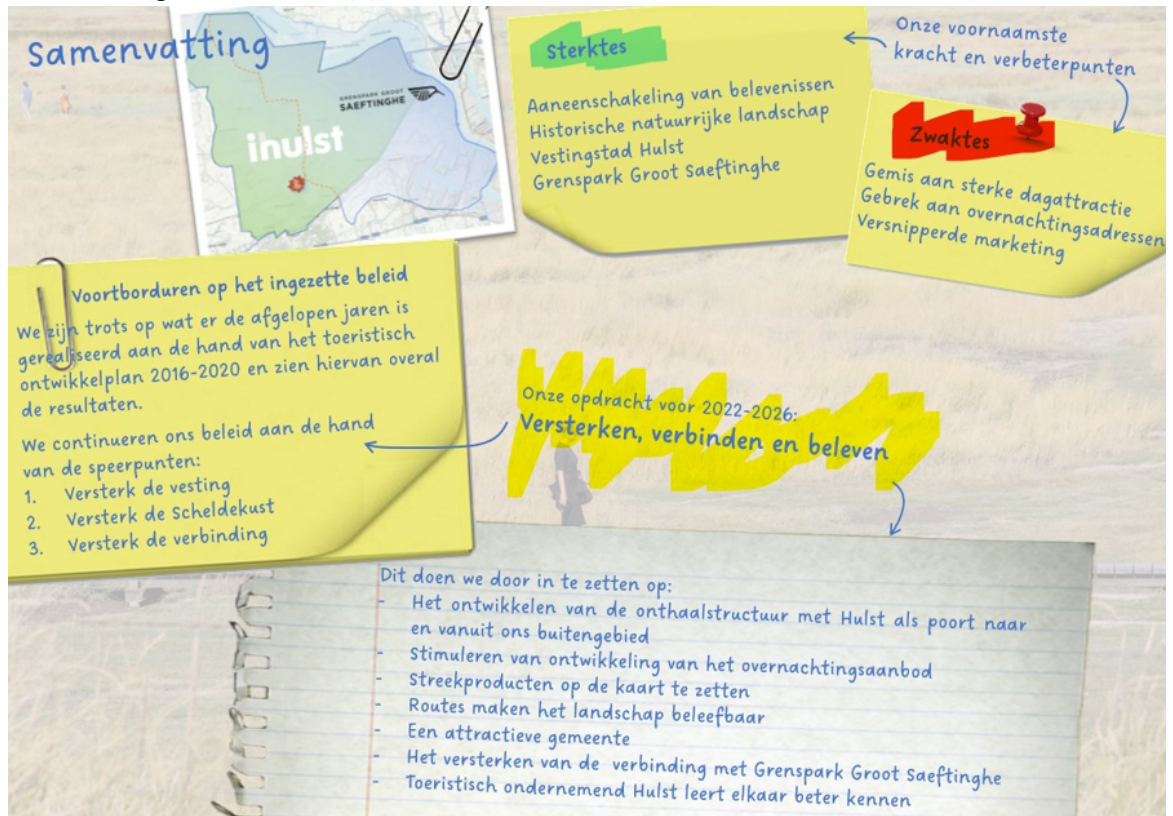 Samenvatting
GRENSPARK GROOT
SAEFTINGHE
ihulst
Sterktes
Aaneenschakeling van belevenissen
Historische natuurrijke landschap
Vestingstad Hulst
Grenspark Groot Saeftinghe
Onze voornaamste
kracht en verbeterpunten
Zwaktes
Gemis aan sterke dagattractie
Gebrek aan overnachtingsadressen
Versnipperde marketing
Voortborduren op het ingezette beleid
We zijn trots op wat er de afgelopen jaren is
gerealiseerd aan de hand van het toeristisch
ontwikkelplan 2016-2020 en zien hiervan overal
de resultaten.
We continueren ons beleid aan de hand
van de speerpunten:
1. Versterk de vesting
2. Versterk de Scheldekust
3. Versterk de verbinding
Onze opdracht voor 2022-2026:
Versterken, verbinden en beleven
Dit doen we door in te zetten op:
- Het ontwikkelen van de onthaalstructuur met Hulst als poort naar
en vanuit ons buitengebied
- Stimuleren van ontwikkeling van het overnachtingsaanbod
- Streekproducten op de kaart te zetten
- Routes maken het landschap beleefbaar
- Een attractieve gemeente
- Het versterken van de verbinding met Grenspark Groot Saeftinghe
- Toeristisch ondernemend Hulst leert elkaar beter kennen